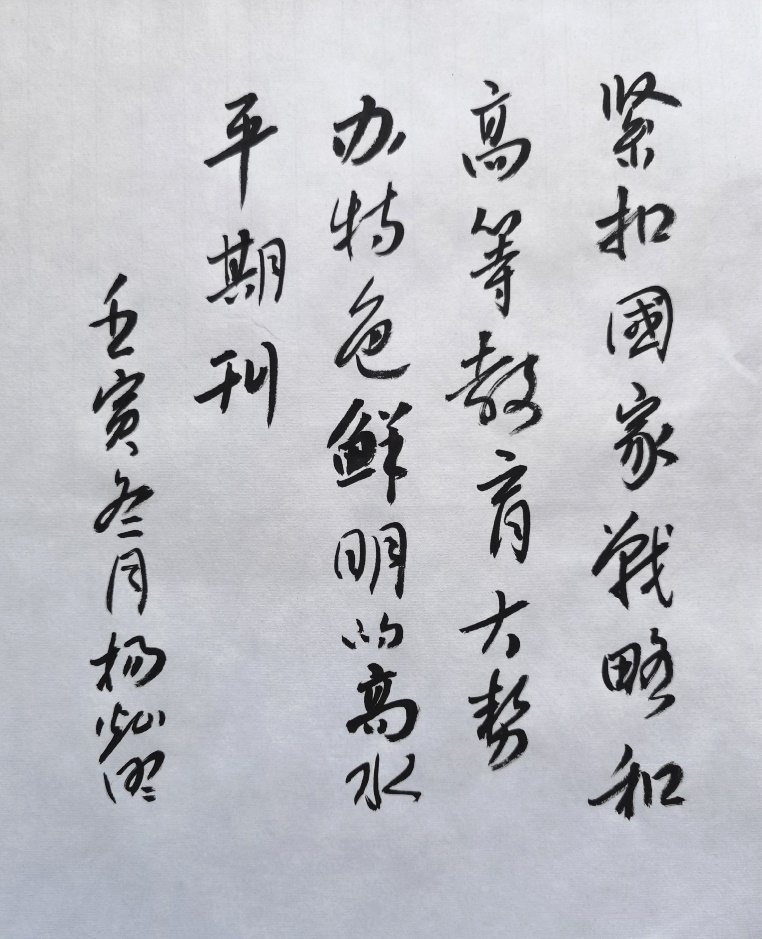 紧扣國家战略和
高等教育大势
办特色鲜明的高水
平期刊
壬寅冬月杨灿明